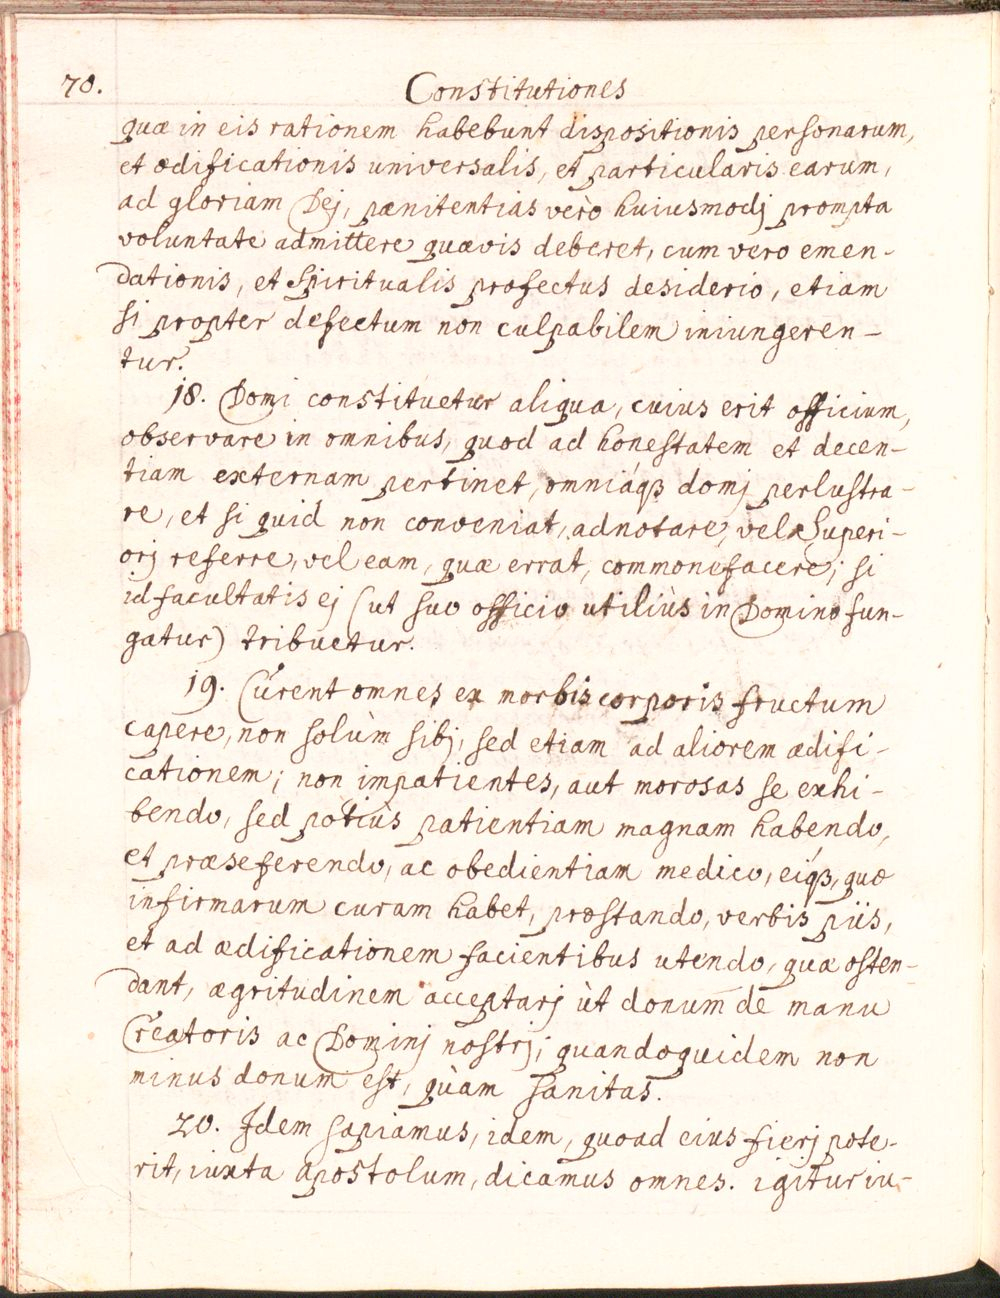 70. Constitutiones
quæ in eis rationem habebunt dispositionis personarum,
et ædificationis universalis, et particularis earum,
ad gloriam Dej, pænitentias verò huiusmodj prompta
voluntate admittere quævis deberet, cum vero emen-
dationis, et Spiritualis profectus desiderio, etiam
si propter defectum non culpabilem iniungeren-
tur.
18. Domi constituetur aliqua, cuius erit officium,
observare in omnibus, quod ad honestatem et decen-
tiam externam pertinet, omniáqꝫ domj perlustra-
re, et si quid non conveniat, adnotare, vel Superi-
orj referre, vel eam, quæ errat, commonefacere; si
id facultatis ej (ut suo officio utiliùs in Domino fun-
gatur) tribuetur.
19. Curent omnes ex morbis corporis fructum
capere, non solùm sibj, sed etiam ad aliorem ædifi-
cationem; non impatientes, aut morosas se exhi-
bendo, sed potiùs patientiam magnam habendo,
et præseferendo, ac obedientiam medico, eiqꝫ, quæ
infirmarum curam habet, præstando, verbis piis,
et ad ædificationem facientibus utendo, quæ osten-
dant, ægritudinem acceptarj ùt donum de manu
Creatoris ac Dominj nostrj; quandoquidem non
minus donum est, quàm sanitas.
20. Idem sapiamus, idem, quoad eius fierj pote-
rit, iuxta apostolum, dicamus omnes. igitur iu-